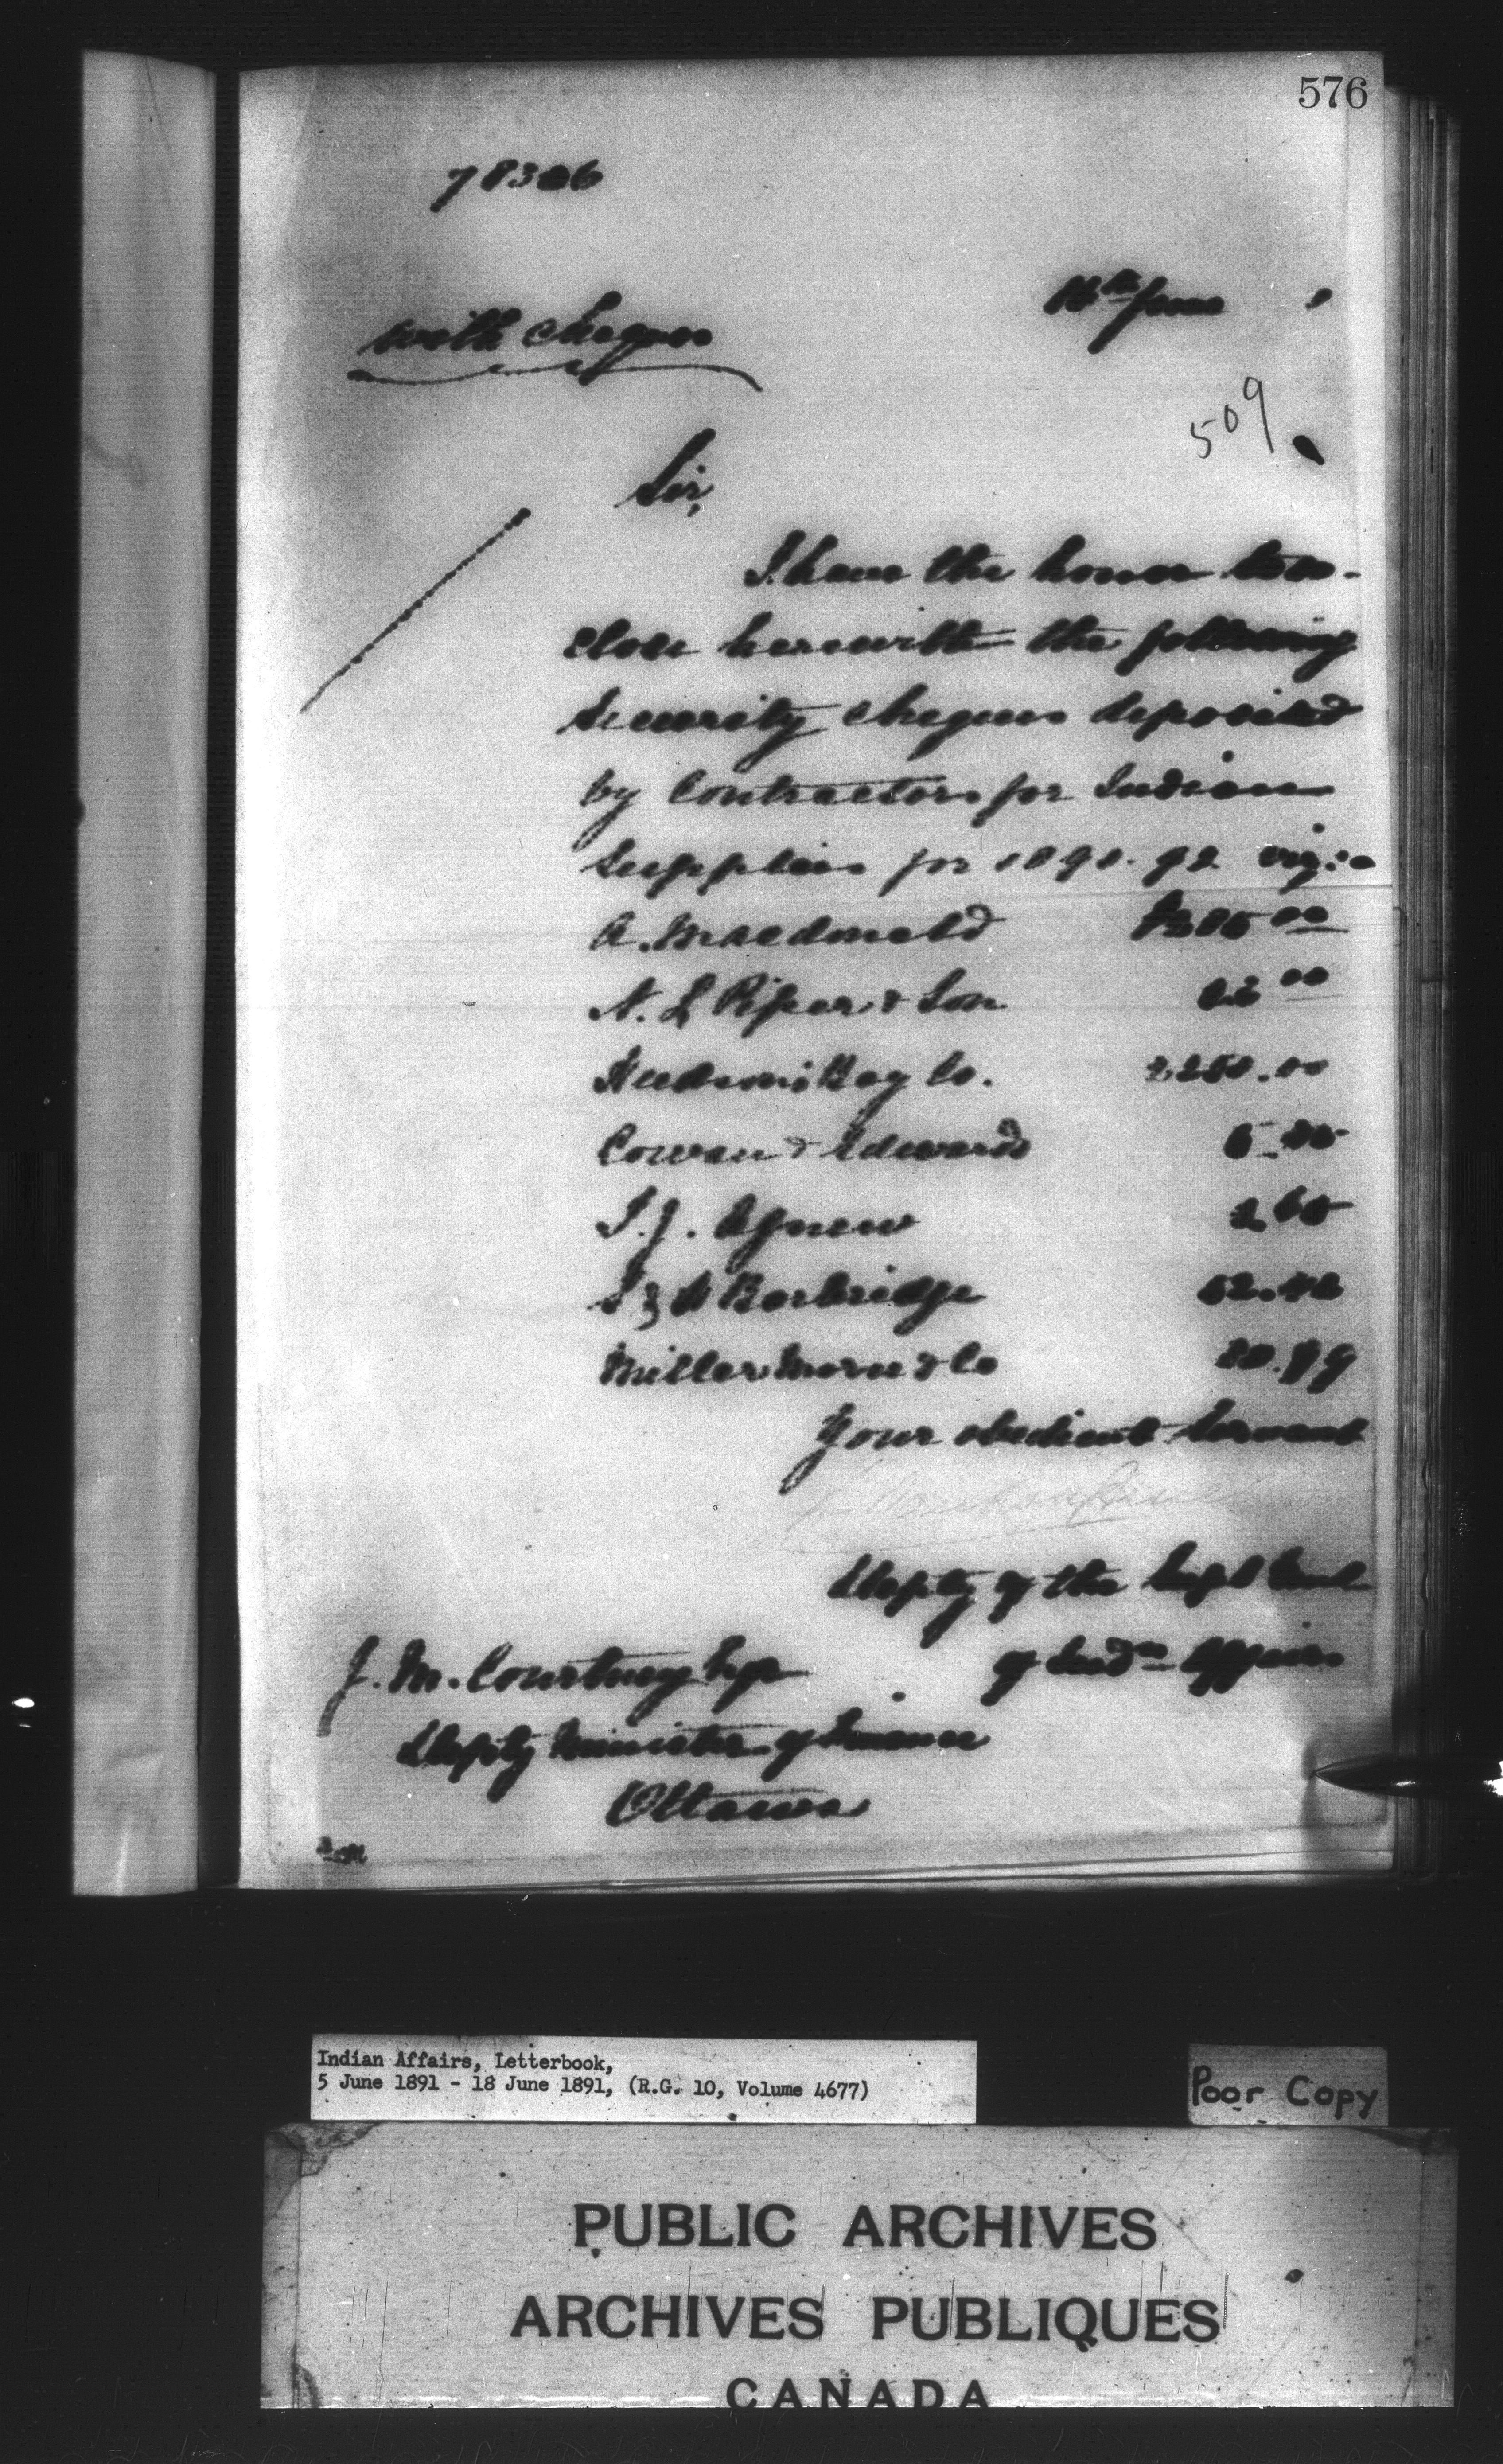 576
78306
16th June
With cheques
509
Sir,
I have the honor to en-
close herewith the following
Security cheques deposited
by Contractors for Indian
Supplies for 1891-92 viz:-
A. Macdonald
N. L Piper & Son 00
Hudson's Bay Co. 2250.00
Cowan & Edwards
T. J. Agnew
S & H Borbridge 52.42
Miller Morse & Co
Your obedient Servant
Depty of the Supt Genl
J. M. Courtney Esqr of Indn Affairs
Depty Minister of Finance
Ottawa
Indian Affairs, Letterbook,
5 June 1891 - 18 June 1891, (R.G. 10, Volume 4677)
Poor Copy
PUBLIC ARCHIVES
ARCHIVES PUBLIQUES
CANADA